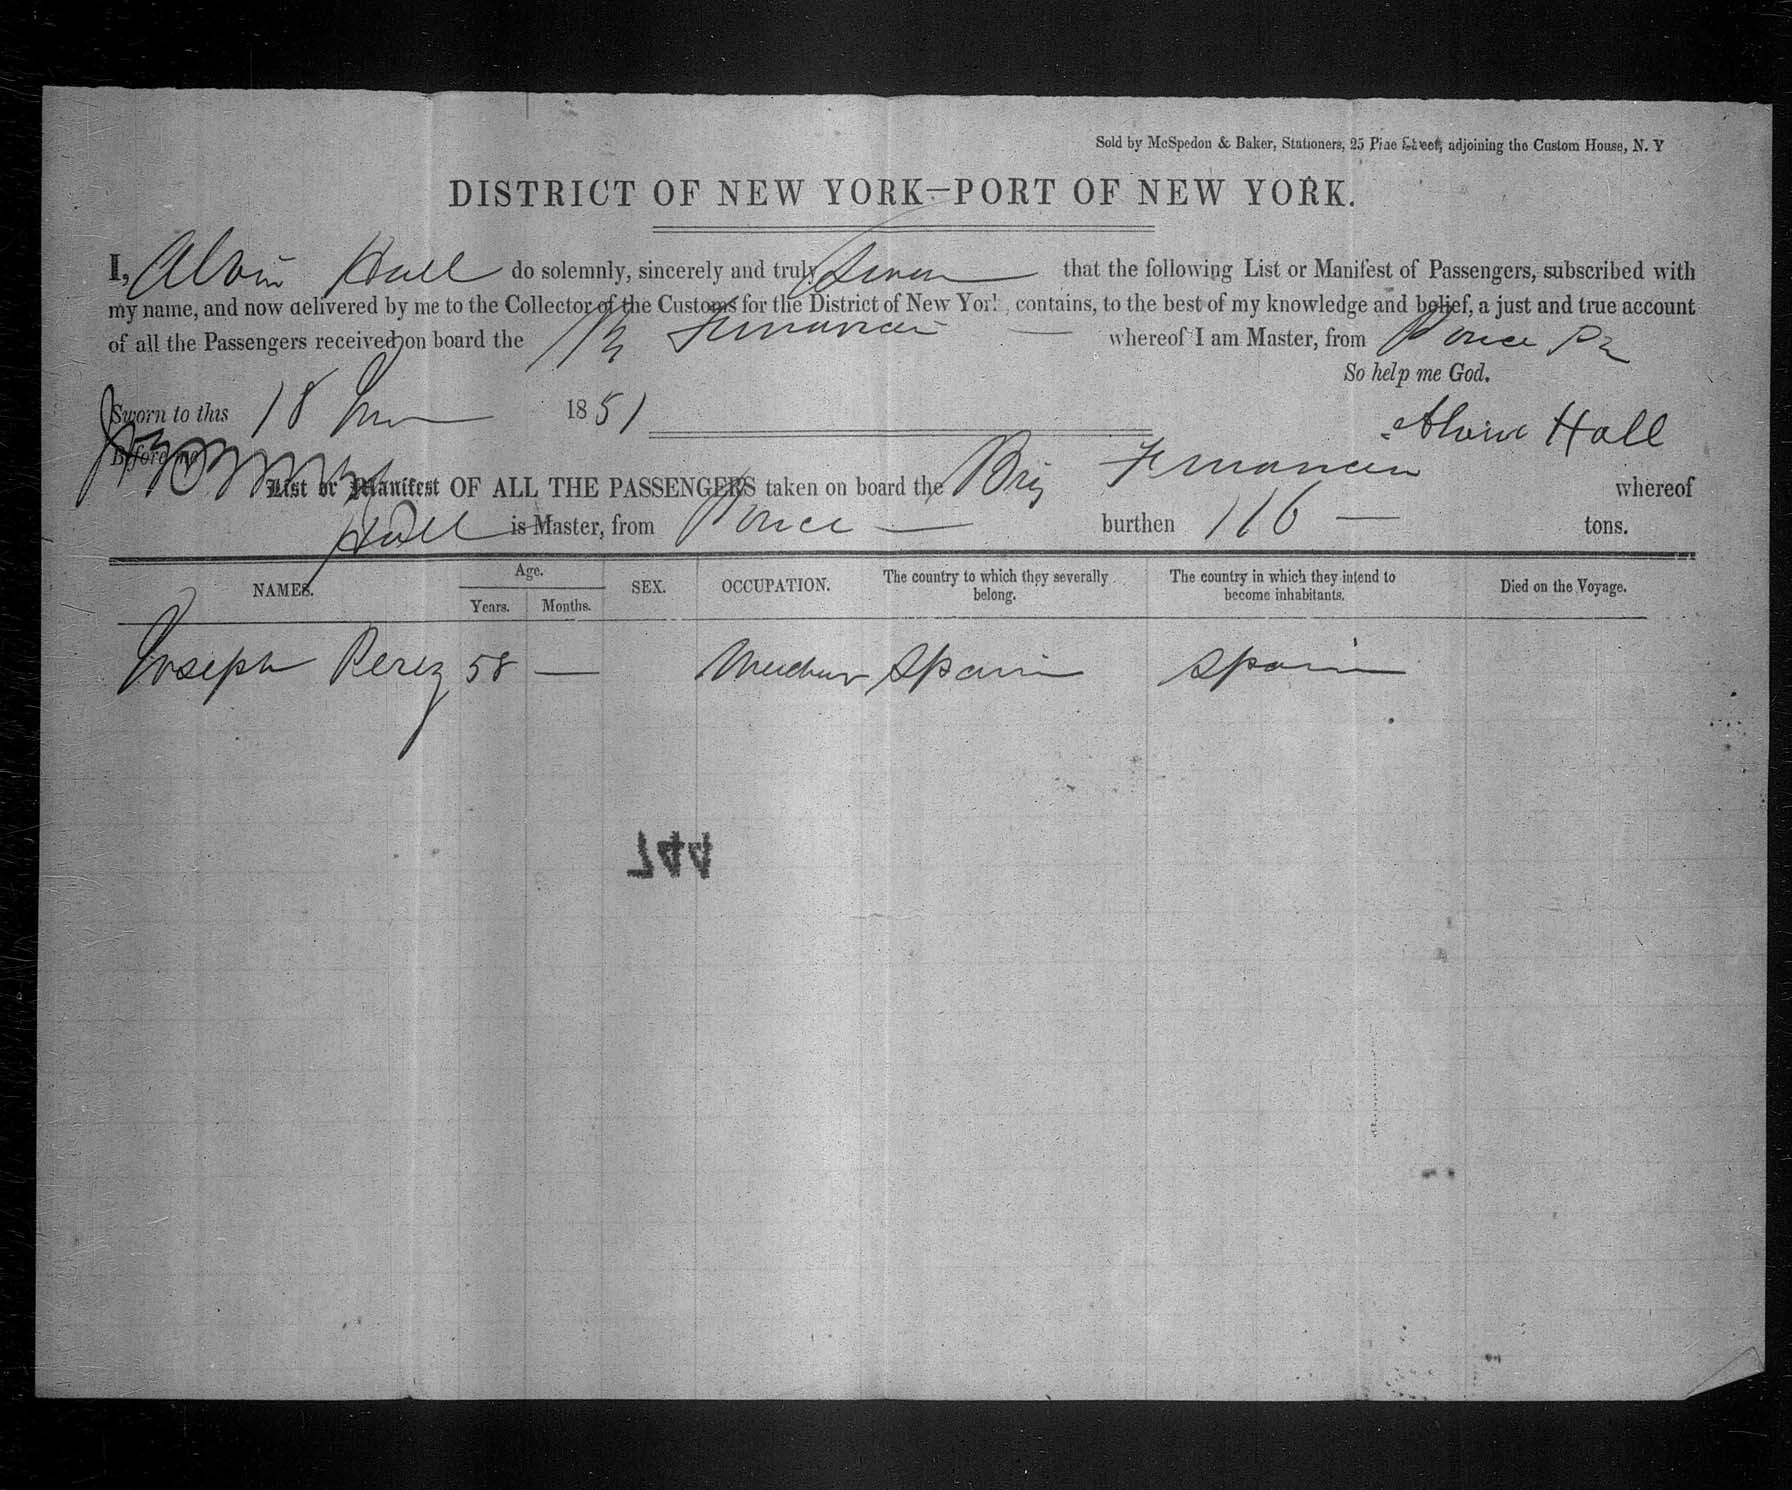 Sold by McSpedon & Baker, Stationers, 25 Pine Street, adjoining the Custom House, N. Y
DISTRICT OF NEW YORK—PORT OF NEW YORK.
I, Alvin Hall do solemnly, sincerely and truly Swear that the following List or Manifest of Passengers, subscribed with
my name, and now delivered by me to the Collector of the Customs for the District of New York, contains, to the best of my knowledge and belief, a just and true account
of all the Passengers received on board the whereof I am Master, from Ponce P R
So help me God.
Sworn to this 18 1851
Alvin Hall
Before me
List or Manifest OF ALL THE PASSENGERS taken on board the Brig whereof
Hall is Master, from Ponce — burthen 116 — tons.
NAMES. Age. Years. Months. SEX. OCCUPATION. The country to which they severally belong. The country in which they intend to become inhabitants. Died on the Voyage.
Joseph Perez 58 — Spain Spain
744